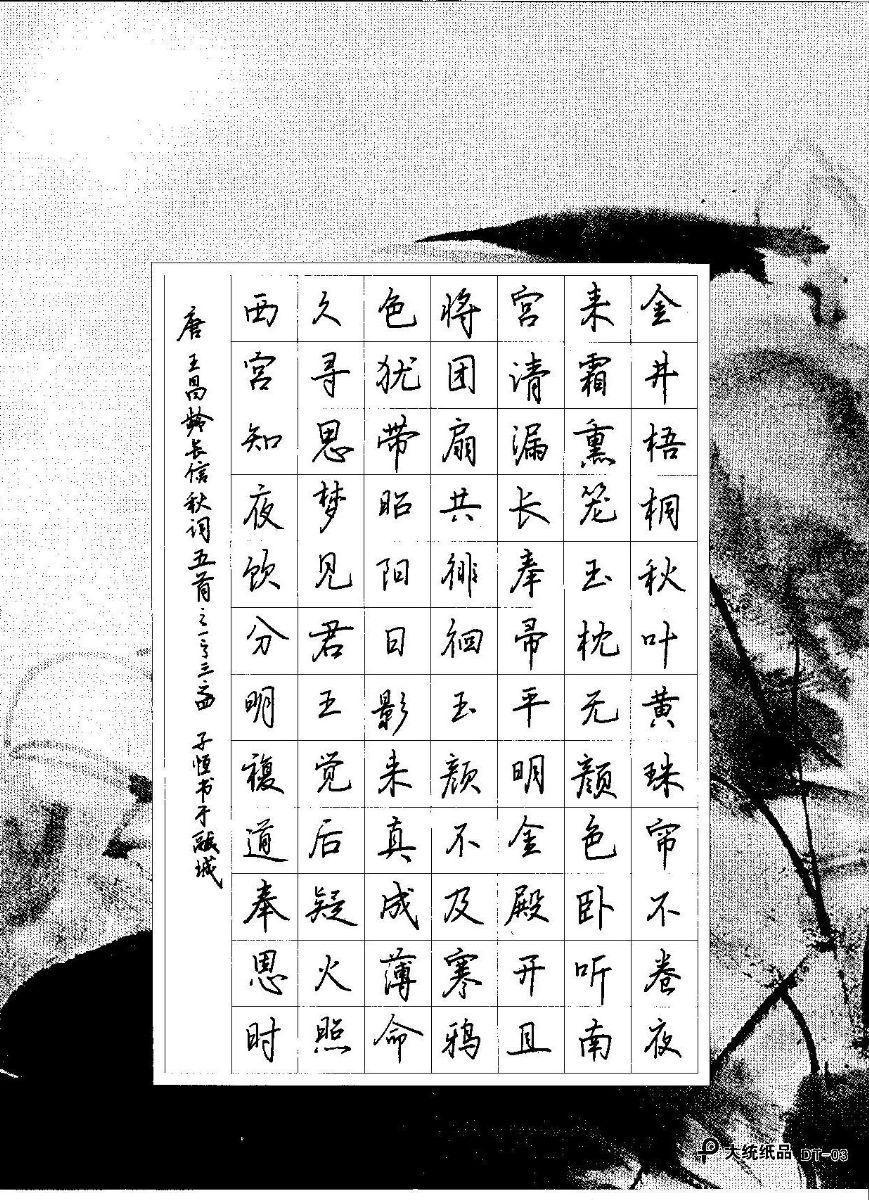 金井梧桐秋叶黄珠帘不卷夜
来霜熏笼玉枕无颜色卧听南
宫清漏长奉帚平明金殿开且
将团扇共徘徊玉颜不及寒鸦
色犹带昭阳日影来真成薄命
久寻思梦见君王觉后疑火照
西宫知夜饮分明複道奉恩时
唐王昌龄长信秋词五首之一
大统纸品 DT-03